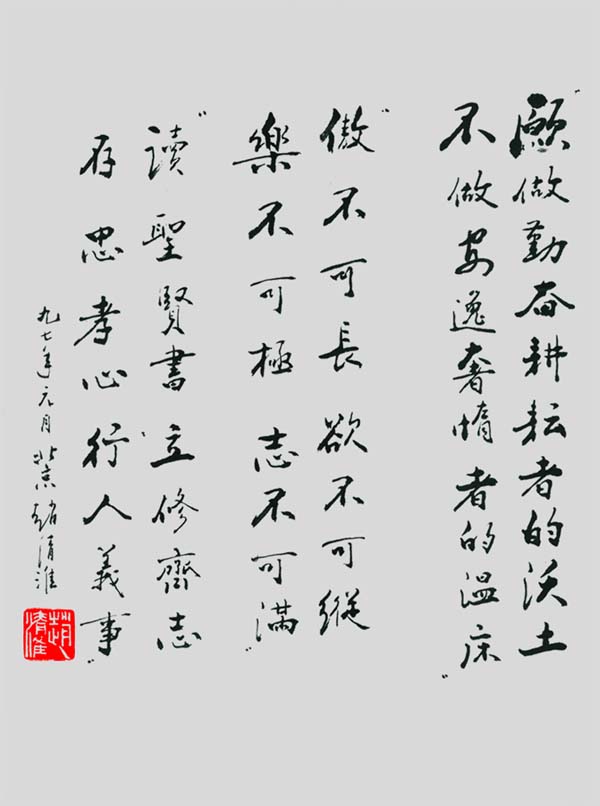 “愿做勤奋耕耘者的沃土
不做安逸奢惰者的温床”
“傲不可長 欲不可縱
樂不可極 志不可满”
“讀聖賢書 立修齊志
存忠孝心行人義事”
九七年元月北京趙清淮
趙清淮